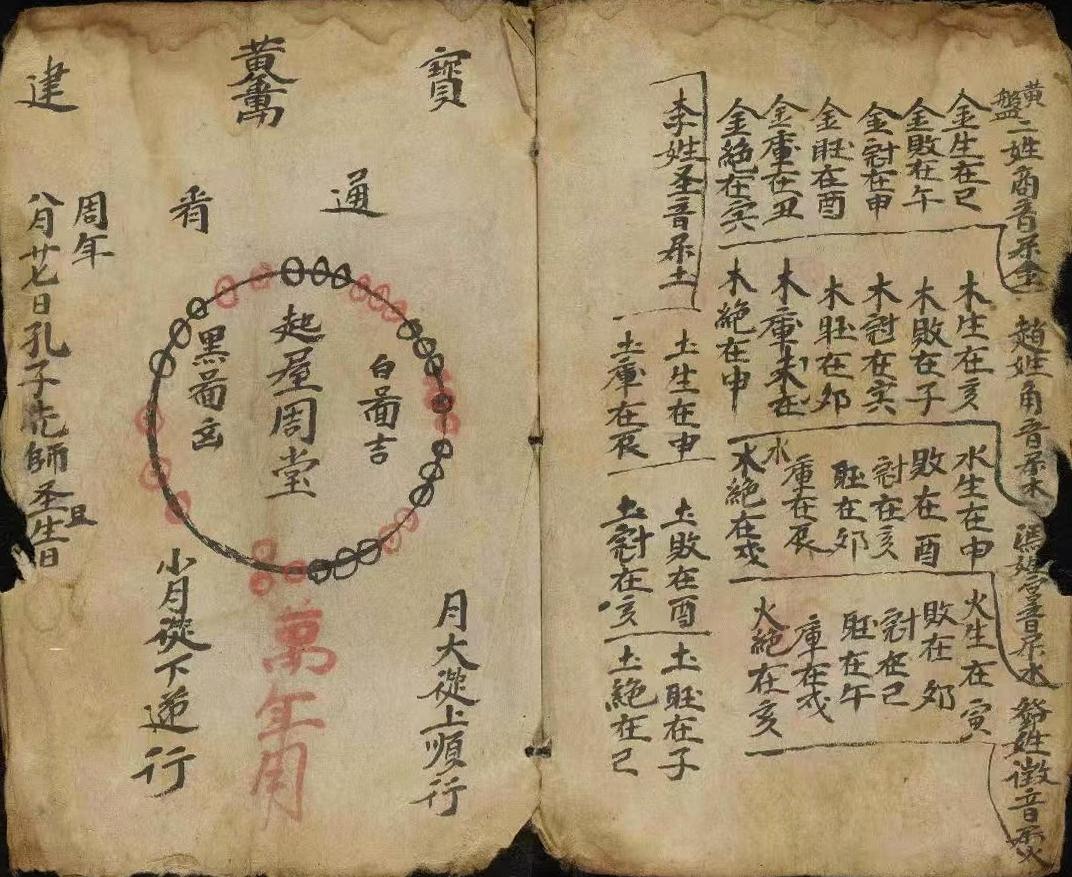 黄盤二姓商音属金
金生在巳
金敗在午
金冠在申
金旺在酉
金庫在丑
金絕在寅
趙姓角音属木
木生在亥
木敗在子
木冠在寅
木旺在卯
木庫未在
木絕在申
音属水
水生在申
敗在酉
冠在亥
旺在卯
庫在辰
水
水絕在戌
姓徵音属火
火生在寅
敗在卯
冠在巳
旺在午
庫在戌
火絕在亥
李姓圣音属土
土生在申
土庫在辰
土敗在酉
土冠在亥
土旺在子
土絕在己
寶
黄萬
建
通
看
起屋周堂
白圖吉
黑圖凶
月大從上順行
萬年周
小月從下逆行
周年
八月廿七日孔子先師圣生日
旦